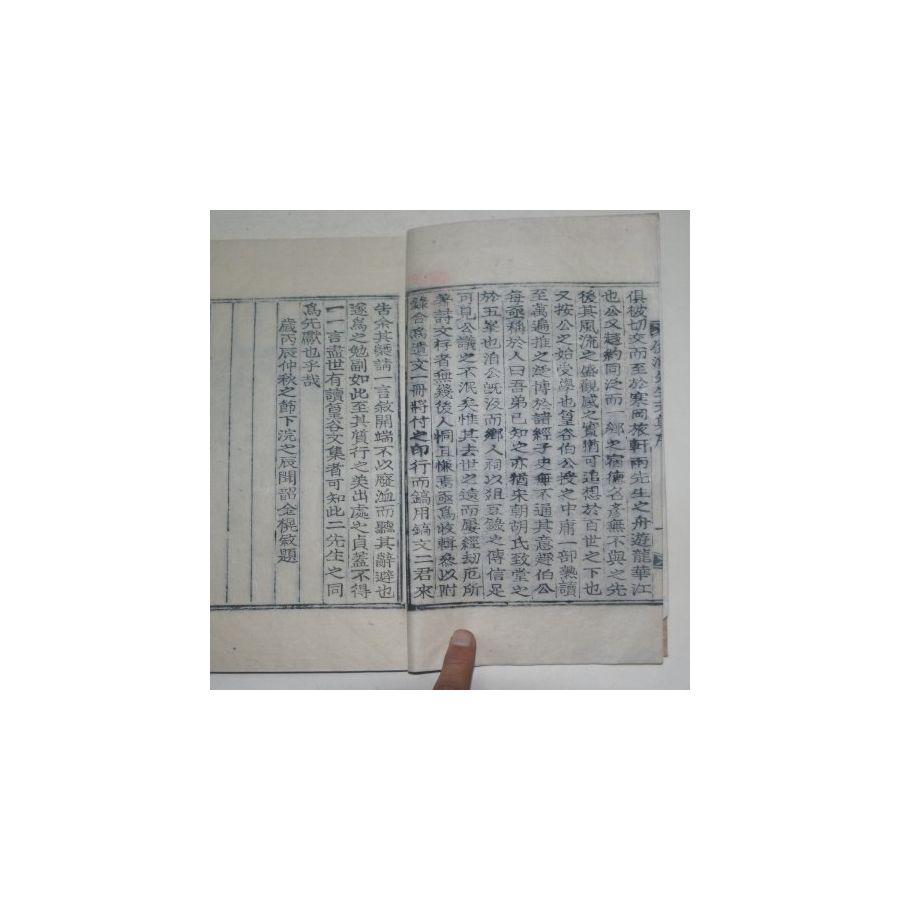 俱被切交而至於寒岡旅軒兩先生之舟遊龍華江
也公又趍約同泛而一鄉之宿德名彦無不與之先
後其風流之儐觀感之實猶可追想於百世之下也
又按公之始受學也篁谷伯公授之中庸一部熟讀
至萬遍推之延博於諸經子史無不通其意趣伯公
每亟稱於人曰吾弟已知之亦猶宋朝胡氏致堂之
於五峯也洎公旣沒而鄉人祠以俎豆錄之傳信足
可見公議之不泯矣惟其去世之遠而屢經劫厄所
著詩文存者無幾後人恫且慊焉亟爲收輯叅以附
錄合爲遺文一冊將付之印行而鎬用鎬文二君來
告余其槩請一言敘開端不以廢洫而聽其辭避也
遂爲之勉副如此至其質行之美出處之貞蓋不得
一一言盡世有讀篁谷文集者可知此二先生之同
爲先獻也乎哉
歲丙辰仲秋之節下浣之辰聞韶金榥敘題